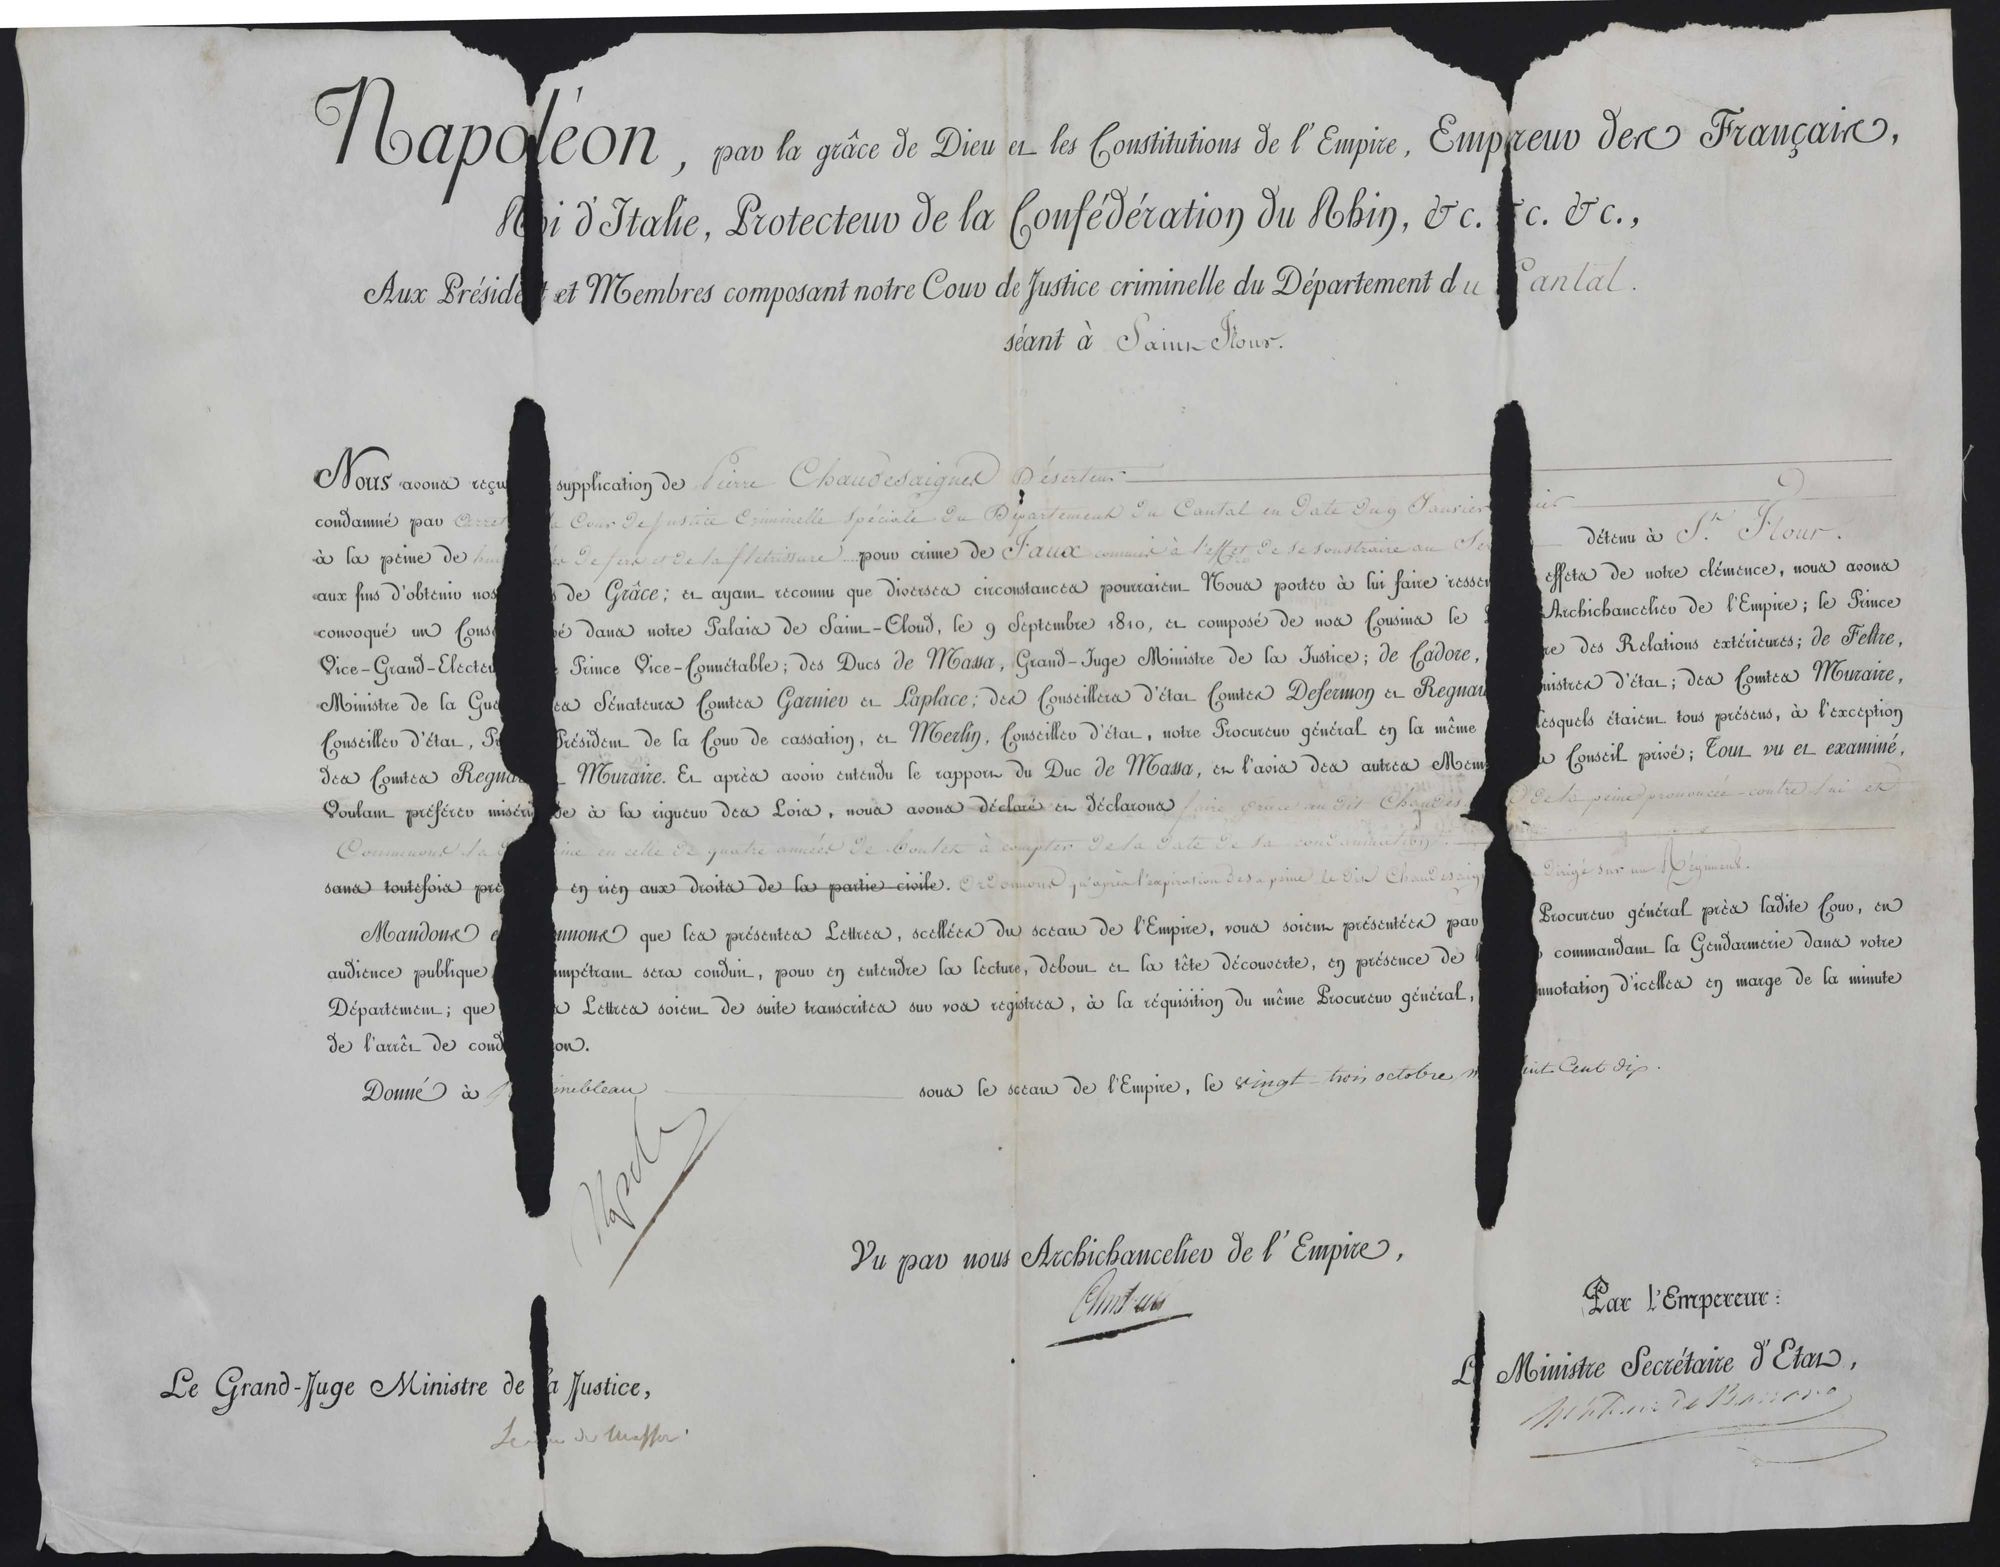 Napoléon, par la grâce de Dieu et les Constitutions de l'Empire, Empereur des Français,
Roi d'Italie, Protecteur de la Confédération du Rhin, &c. &c. &c.,
Aux Président et Membres composant notre Cour de Justice criminelle du Département du Cantal.
séant à Saint Flour.
Nous avons reçu supplication de Pierre Chaudesaigues Déserteur
condamné par arrêt la Cour de Justice Criminelle Spéciale du Département du Cantal en date du 9 Janvier
à la peine de de fers et de la flétrissure pour crime de Faux commis à l'effet de se soustraire au détenu à St. Flour.
aux fins d'obtenir nos de Grâce; et ayant reconnu que diverses circonstances pourraient Nous porter à lui faire effets de notre clémence, nous avons
convoqué un dans notre Palais de Saint-Cloud, le 9 Septembre 1810, et composé de nos Cousins le Archichancelier de l'Empire; le Prince
Vice-Grand-Electeur Prince Vice-Connétable; des Ducs de Massa, Grand-Juge Ministre de la Justice; de Cadore, des Relations extérieures; de Feltre,
Ministre de la Sénateurs Comtes Garnier et Laplace; des Conseillers d'état Comtes Defermon et d'état; des Comtes Muraire,
Conseiller d'état, Président de la Cour de cassation, et Merlin, Conseiller d'état, notre Procureur général en la même lesquels étaient tous présens, à l'exception
des Comtes Muraire. Et après avoir entendu le rapport du Duc de Massa, et l'avis des autres Conseil privé; Tout vu et examiné,
Voulant préférer à la rigueur des Lois, nous avons déclaré et déclarons faire grace au dit de la peine prononcée contre lui et
Commuons la en celle de quatre années de boulet à compter de la date de sa condamnation.
sans toutefois en rien aux droits de la partie civile. Ordonnons qu'après l'expiration de sa peine le dit dirigé sur un Régiment.
Mandons et que les présentes Lettres, scellées du sceau de l'Empire, vous soient présentées par Procureur général près ladite Cour, en
audience publique sera conduit, pour en entendre la lecture, debout et la tête découverte, en présence de commandant la Gendarmerie dans votre
Département; que Lettres soient de suite transcrites sur vos registres, à la réquisition du même Procureur général, d'icelles en marge de la minute
de l'arrêt de condamnation.
Donné à sous le sceau de l'Empire, le vingt-trois octobre cent dix.
Vu par nous Archichancelier de l'Empire,
Par l'Empereur:
Le Ministre Secrétaire d'Etat,
Le Grand-Juge Ministre de la Justice,